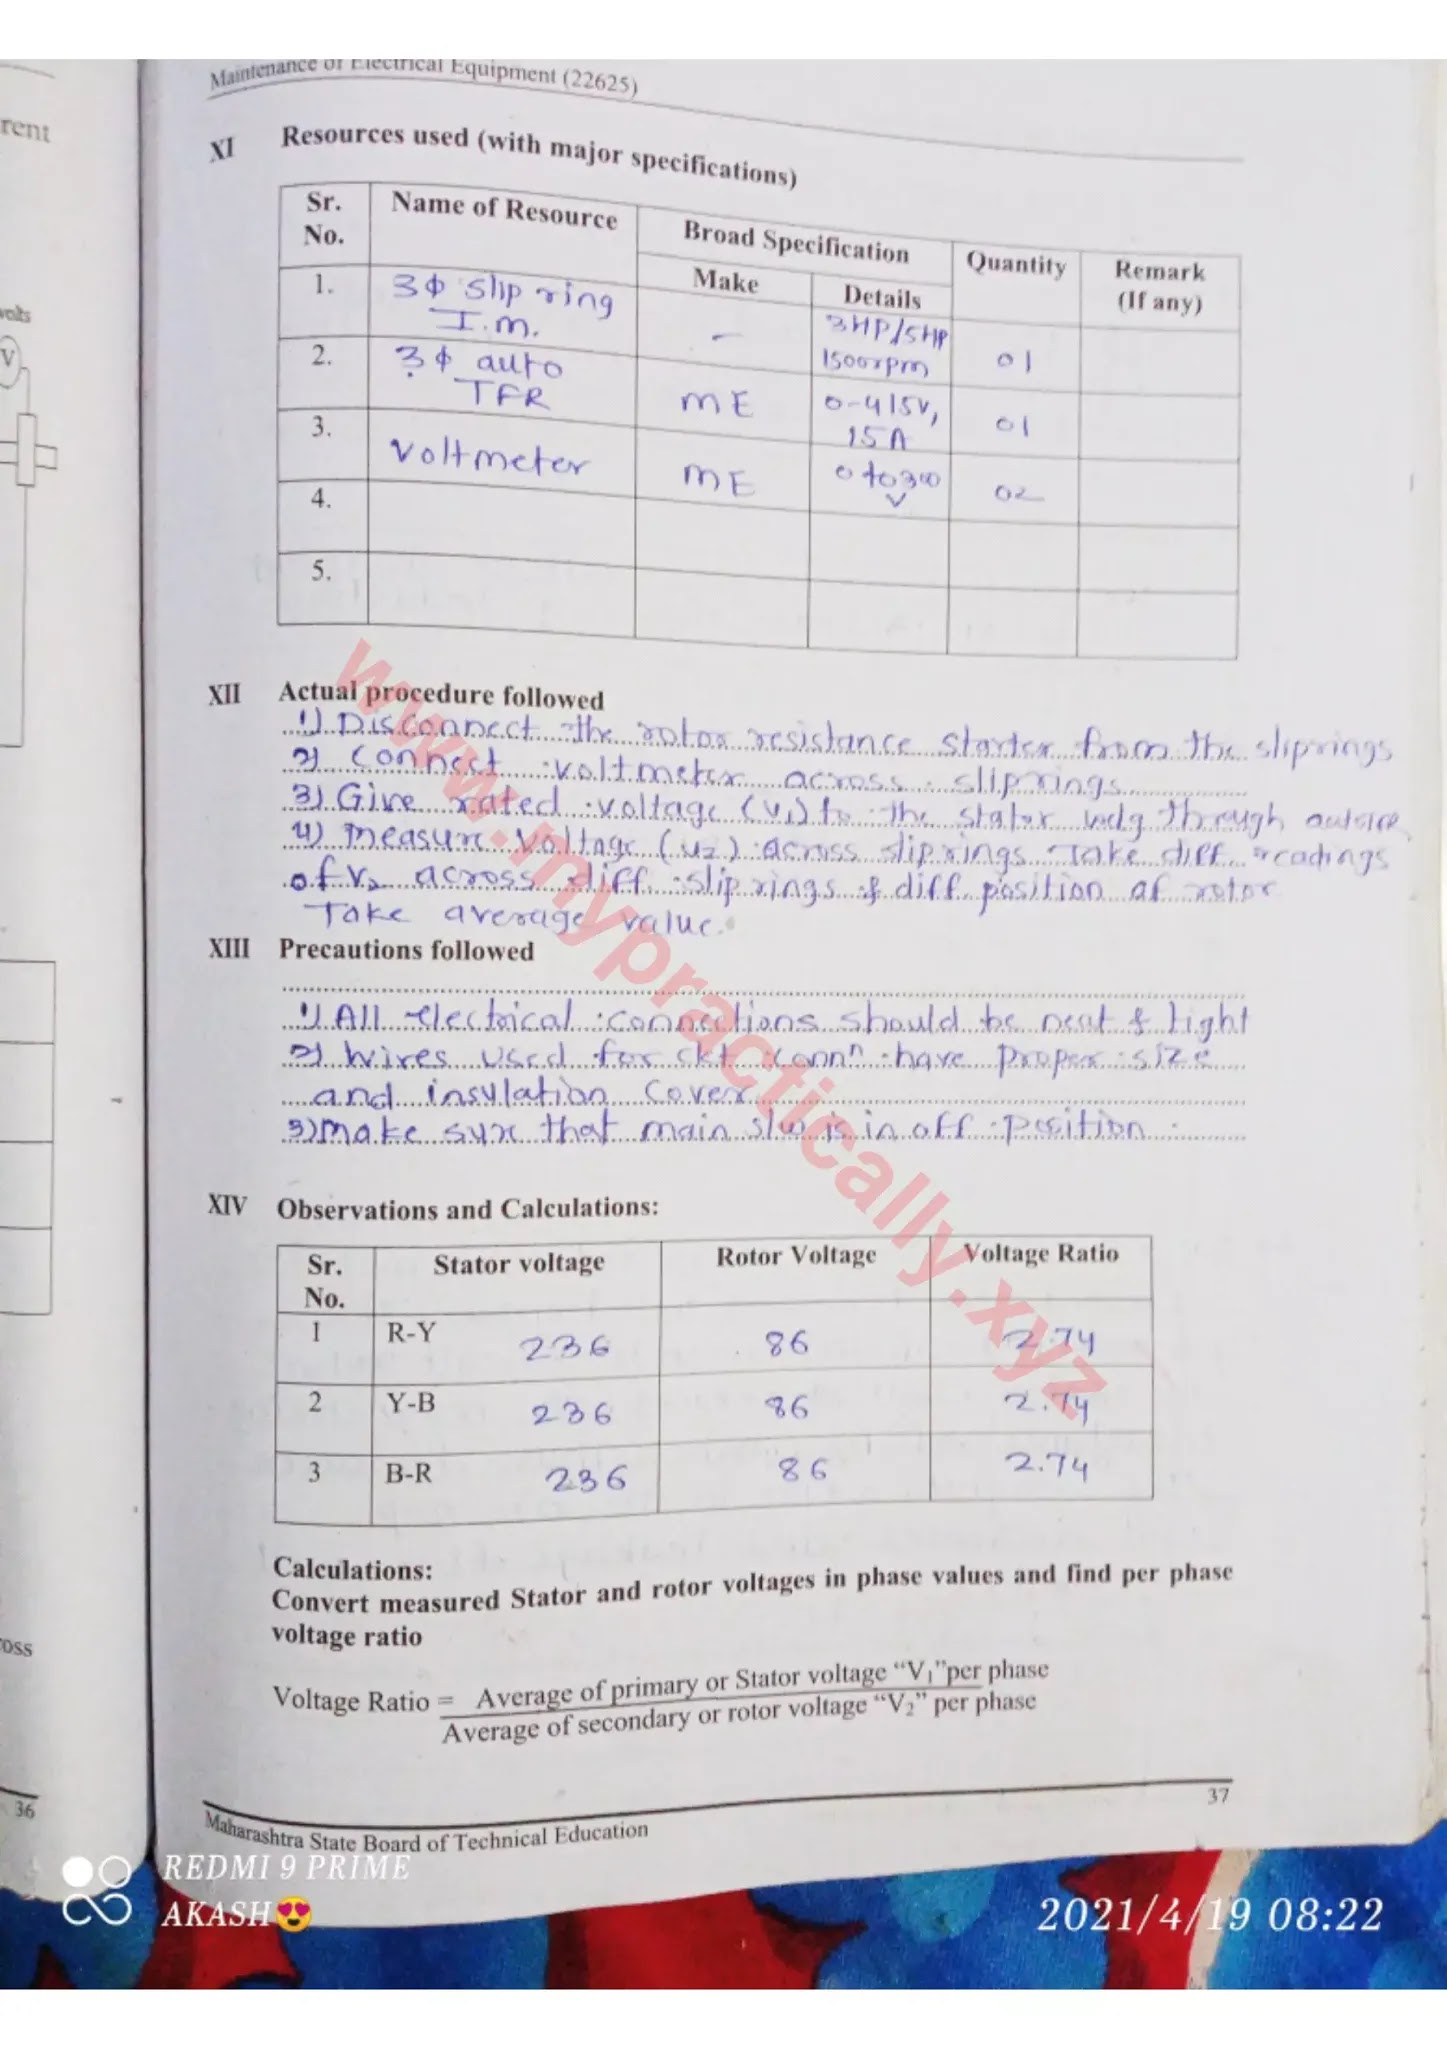 Maintenance of Electrical Equipment (22625)
rent
XI Resources used (with major specifications)
Sr. No. Name of Resource Broad Specification Quantity Remark (If any)
Make Details
1. 3ϕ slip ring I.m. - 3HP/5HP 1500rpm 01
2. 3ϕ auto TFR ME 0-415V, 15A 01
3. Voltmeter ME 0 to 300 V 02
4.
5.
volts
V
XII Actual procedure followed
1) Disconnect the rotor resistance starter from the sliprings
2) Connect voltmeter across sliprings
3) Give rated voltage (V1) to the stator wdg through
4) measure Voltage (V2) across sliprings Take diff. readings
of V2 across diff. slip rings & diff. position of rotor
Take average value.
XIII Precautions followed
1) All electrical connections should be neat & tight
2) Wires used for ckt connⁿ have proper size
and insulation cover
3) Make sure that main s/w is in off position
XIV Observations and Calculations:
Sr. No. Stator voltage Rotor Voltage Voltage Ratio
1 R-Y 236 86 2.74
2 Y-B 236 86 2.74
3 B-R 236 86 2.74
Calculations:
Convert measured Stator and rotor voltages in phase values and find per phase
voltage ratio
oss
Voltage Ratio = Average of primary or Stator voltage “V1”per phase
Average of secondary or rotor voltage “V2” per phase
36
37
Maharashtra State Board of Technical Education
www.mypractically.xyz
REDMI 9 PRIME
AKASH😍
2021/4/19 08:22